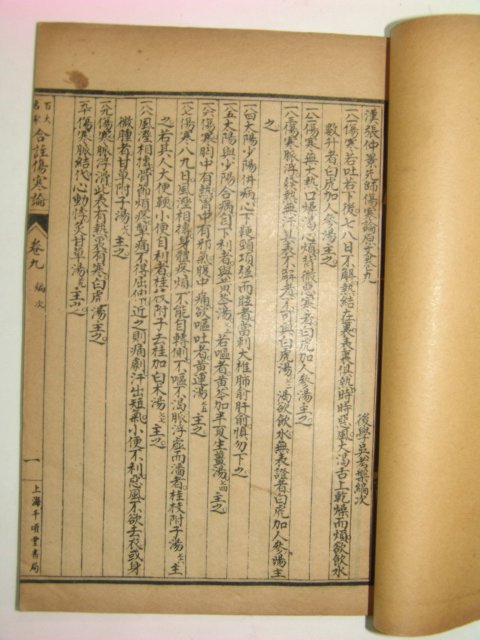 漢張仲景先師傷寒論原文卷九
後學吳考槃編次
一八一傷寒若吐若下後七八日不解熱結在裏表裏俱熱時時惡風大渴舌上乾燥而煩欲飲水
數升者白虎加人參湯主之
一八二傷寒無大熱口燥渴心煩背微惡寒者白虎加人參湯主之
一八三傷寒脈浮發熱無汗其表不解者不可與白虎湯渴欲飲水無表證者白虎加人參湯主
之
一八四太陽少陽併病心下鞕頸項強而眩者當刺大椎肺俞肝俞慎勿下之
一八五太陽與少陽合病自下利者與黃芩湯若嘔者黃芩加半夏生薑湯主之
一八六傷寒胸中有熱胃中有邪氣腹中痛欲嘔吐者黃連湯主之
一八七傷寒八九日風溼相摶身體疼煩不能自轉側不嘔不渴脈浮虛而濇者桂枝附子湯主
之若其人大便鞕小便自利者桂枝附子去桂加白朮湯主之
一八八風溼相摶骨節煩疼掣痛不得屈伸近之則痛劇汗出短氣小便不利惡風不欲去衣或身
微腫者甘草附子湯主之
一八九傷寒脈浮滑此表有熱裏有寒白虎湯主之
一九十傷寒脈結代心動悸炙甘草湯主之
百大名家合註傷寒論
卷九
編次
一
上海千頃堂書局